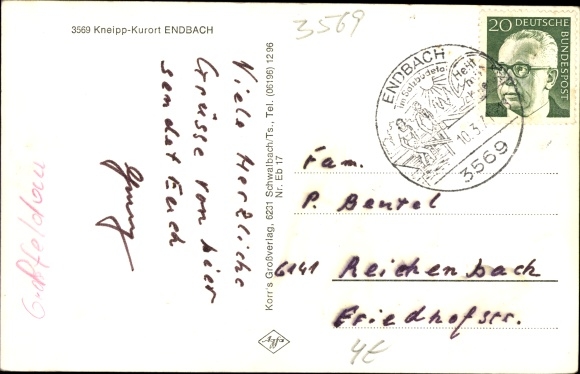 3569 Kneipp-Kurort ENDBACH
3569
Viele Herzliche
Grüsse von hier
sendet Euch
Korr's Großverlag, 6231 Schwalbach/Ts., Tel. (06196) 1296
Nr. Eb 17
Agfa
20 DEUTSCHE
BUNDESPOST
ENDBACH
im Gladenbach
10.3.7
3569
Fam.
P. Beutel
6141 Reichenbach
Friedhofstr.
4€